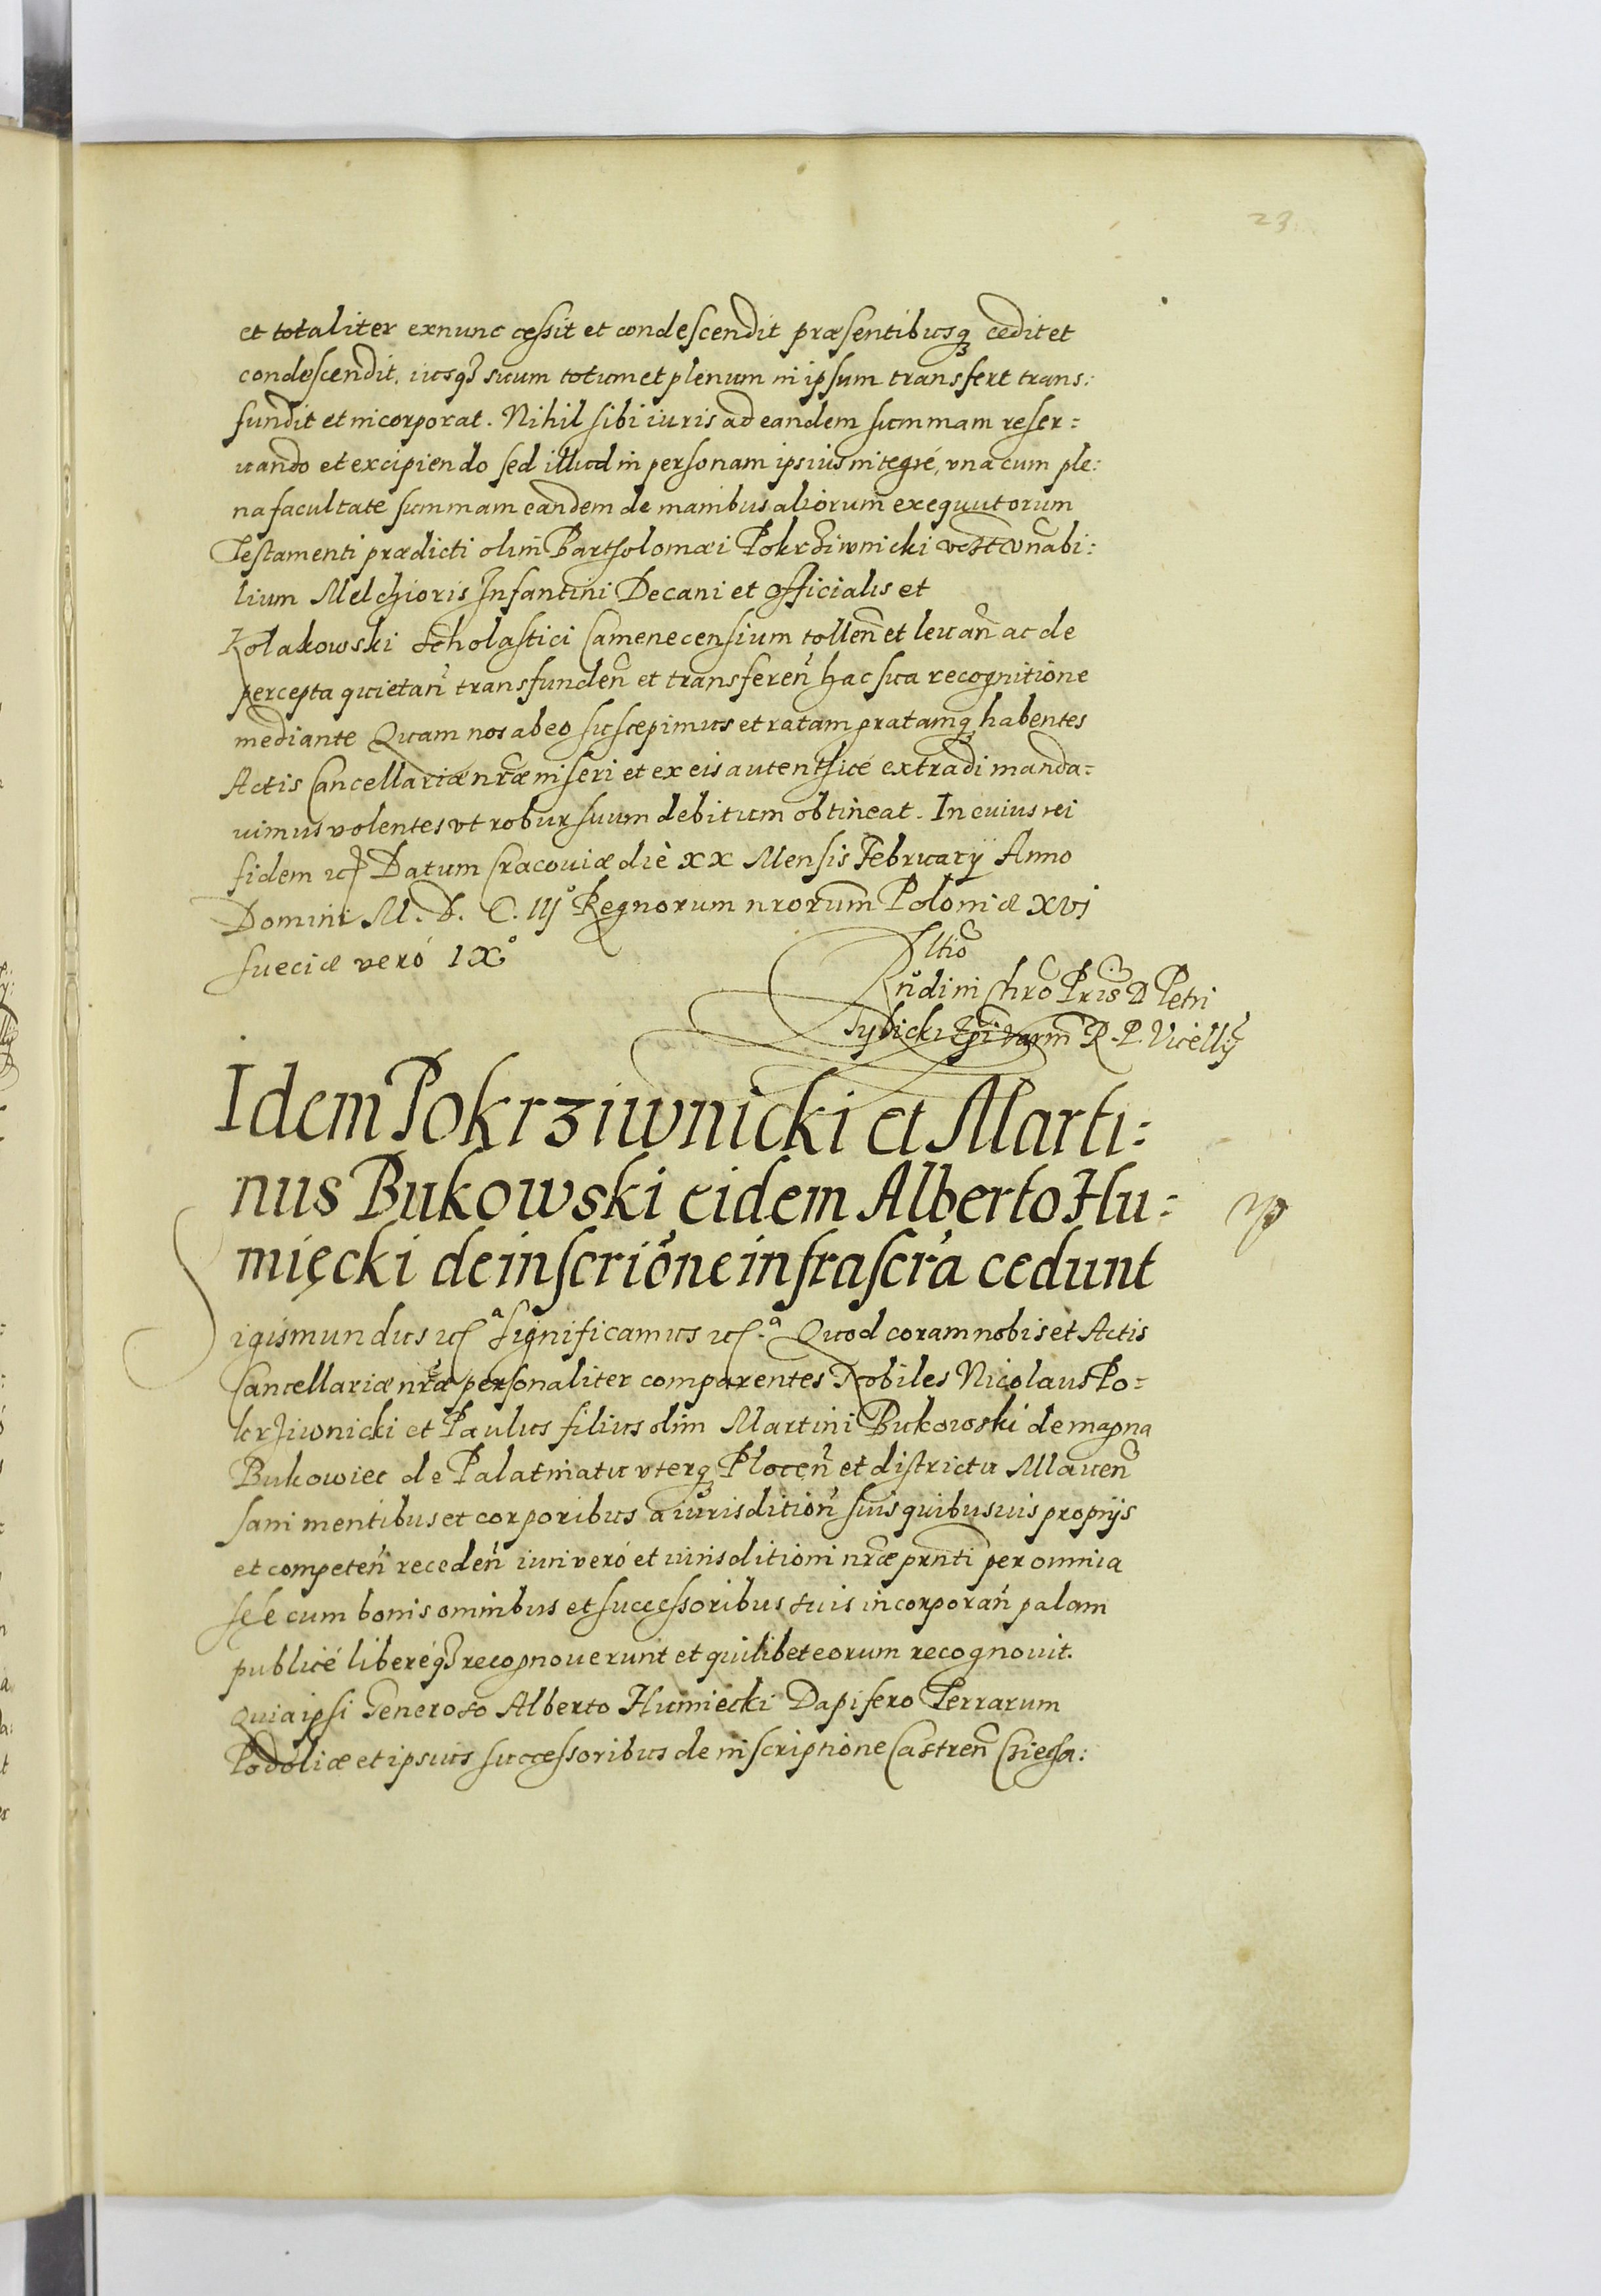 23
et totaliter exnunc cessit et condescendit præsentibusq3 cedit et
condescendit, iusq3 suum totum et plenum in ipsum transfert trans:
fundit et incorporat. Nihil sibi iuris ad eandem summam reser:
uando et excipiendo sed illud in personam ipsius integré, vna cum ple:
na facultate summam eandem de manibus aliorum exequutorum
Testamenti prædicti olim Bartholomæi Pokrziwnicki vnabi:
lium Melchioris Infantini Decani et Officialis et
Kolakowski Scholastici Camenecensium tollen̄ et leuan̄ ac de
percepta quietan̄ transfunden̄ et transferen̄ hac sua recognitione
mediante Quam nos ab eo suscepimus et ratam gratamq3 habentes
Actis Cancellariæ nræ inseri et ex eis autenthicé extradi manda:
uimus volentes vt robur suum debitum obtineat. In cuius rei
fidem Datum Cracouiæ die XX Mensis February Anno
Domini M. D. C. IIJ° Regnorum nrorum Poloniæ XVI
Sueciæ veró IX°
Rndi in Chro Pris D Petri
Tylicki Epi R. P. Vicelly
Idem Pokrziwnicki et Marti:
nus Bukowski eidem Alberto Hu:
mięcki de inscriōne infrascra cedunt
Sigismundus Significamus Quod coram nobis et Actis
Cancellariæ nræ personaliter comparentes Nobiles Nicolaus Po:
krziwnicki et Paulus filius olim Martini Bukowski de magna
Bukowiec de Palatinatu vterq3 Plocen̄ et districtu Mlauen̄
sani mentibus et corporibus a iurisdition̄ suis quibusuis proprijs
et competen̄ receden̄ iuri veró et iurisditioni nræ prnti per omnia
sese cum bonis omnibus et successoribus suis incorporan̄ palam
publicé liberéq3 recognouerunt et quilibet eorum recognouit.
Quia ipsi Generoso Alberto Humiecki Dapifero Terrarum
Podoliæ et ipsius successoribus de inscriptione Castren̄